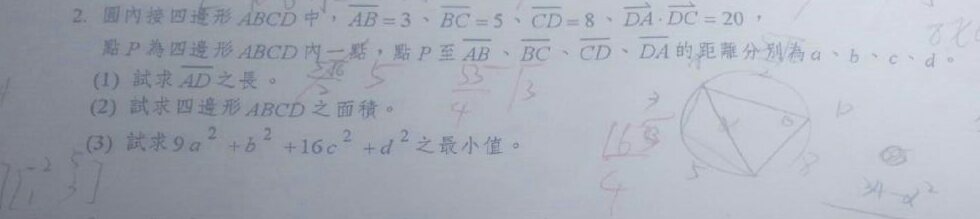 2. 圓內接四邊形 ABCD 中，AB = 3、BC = 5、CD = 8、DA · DC = 20，
點 P 為四邊形 ABCD 內一點，點 P 至 AB、BC、CD、DA 的距離分別為 a、b、c、d。
(1) 試求 AD 之長。
(2) 試求四邊形 ABCD 之面積。
(3) 試求 9a² + b² + 16c² + d² 之最小值。